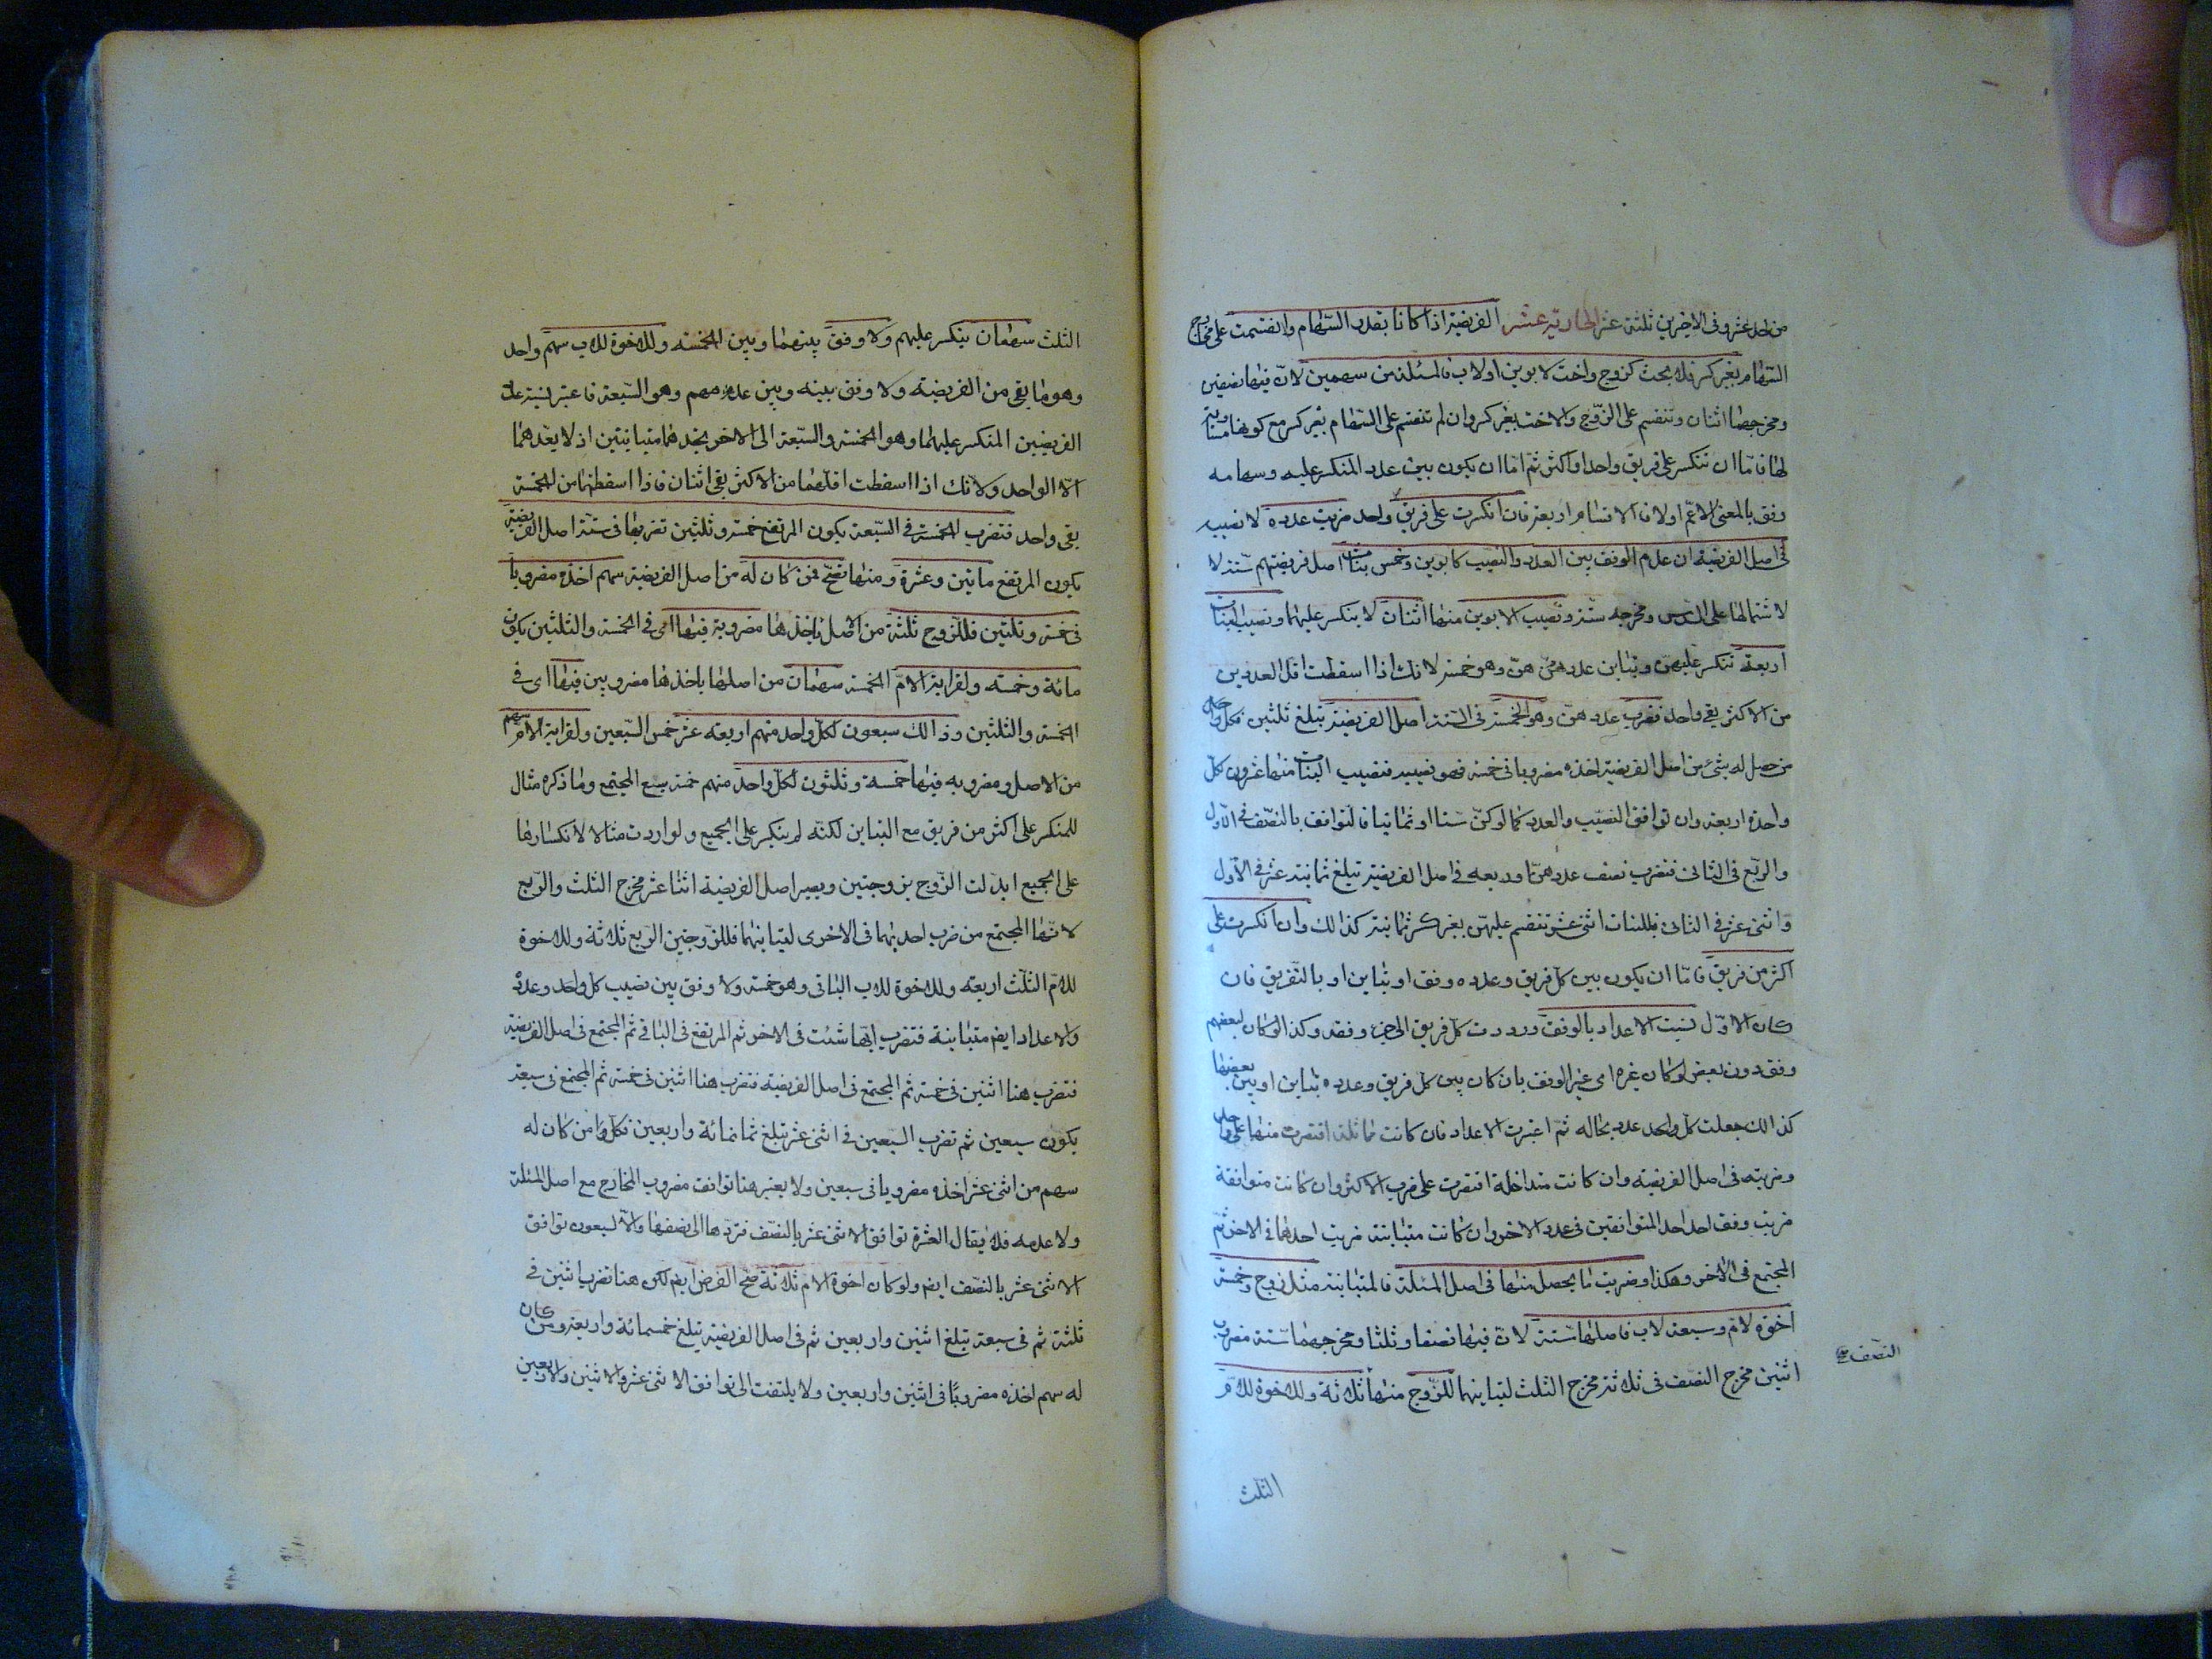 من احد عشر وفى الاخيرين ثلثة عشر الحادية عشر الفريضة اذا كانت بقدر السهام وانقسمت على مخارج
السهام بغير كسر فلا بحث كزوج واخت لابوين او لاب فالمسئلة من سهمين لان فيها نصفين
ومخرجها اثنان وتنقسم على الزوج والاخت بغير كسر وان لم تنقسم على السهام بغير كسر مع كونها مساوية
لها فاما ان تنكسر على فريق واحد او اكثر ثم اما ان يكون بين عدد المنكسر عليه وسهامه
وفق بالمعنى الاعم اولا فالاقسام اربعة فان انكسرت على فريق واحد ضربت عدده لا نصيبه
فى اصل الفريضة ان عدم الوفق بين العدد والنصيب كابوين وخمس بنات اصل فريضتهم ستة لا
لاشتمالها على السدس ومخرجه ستة ونصيب الابوين منها اثنان لا ينكسر عليهما ونصيب البنات
اربعة تنكسر عليهن وتباين عددهن وهو خمسة لانك اذا اسقطت اقل العددين
من الاكثر بقى واحد فتضرب عددهن وهو الخمسة فى الستة اصل الفريضة تبلغ ثلثين فكل واحد
من حصل له شئ من اصل الفريضة اخذه مضروبا فى خمسة فهو نصيبه فنصيب البنات منها عشرون لكل
واحدة اربعة وان توافق النصيب والعدد كما لو كن ستا او ثمانيا فالتوافق بالنصف فى الاول
والربع فى الثانى فتضرب نصف عددهن او ربعه فى اصل الفريضة تبلغ ثمانية عشر فى الاول
واثنى عشر فى الثانى فللبنات اثنى عشر تنقسم عليهن بغير كسر ثمانية كذالك وان انكسرت على
اكثر من فريق فاما ان يكون بين كل فريق وعدده وفق او تباين او بالتفريق فان
كان الاول نسبت الاعداد بالوفق ورددت كل فريق الى جزء وفقه وكذا لو كان لبعضهم
وفق دون بعض لو كان غيره اى غير الوفق بان كان بين كل فريق وعدده تباين او بين بعضها
كذالك جعلت كل واحد عدد بحاله ثم اعتبرت الاعداد فان كانت متماثلة اقتصرت منها على واحد
وضربته فى اصل الفريضة وان كانت متداخلة اقتصرت على ضرب الاكثر وان كانت متوافقة
ضربت وفق احد احد المتوافقين فى عدد الاخر وان كانت متباينة ضربت احدها فى الاخر ثم
المجتمع فى الاخر وهكذا وضربت ما يحصل منها فى اصل المسئلة فالمتباينة مثل زوج وخمسة
اخوة لام وسبعة لاب فاصلها ستة لان فيها نصفا وثلثا ومخرجهما ستة مضروب
اثنين مخرج النصف فى ثلاثة مخرج الثلث لتباينهما للزوج منها ثلاثة وللاخوة للام
النصف
الثلث
الثلث سهمان ينكسر عليهم ولا وفق بينهما وبين الخمسة وللاخوة للاب سهم واحد
وهو ما بقى من الفريضة ولا وفق بينه وبين عددهم وهو السبعة فاعتبر نسبة عدد
الفريضين المنكسر عليهما وهو الخمسة والسبعة الى الاخر تجدهما متباينين اذ لا يعدهما
الا الواحد ولانك اذا اسقطت اقلهما من الاكثر بقى اثنان فاذا اسقطتهما من الخمسة
بقى واحد فتضرب الخمسة فى السبعة يكون المرتفع خمسة وثلثين تضربها فى ستة اصل الفريضة
يكون المرتفع ماتين وعشرة ومنها تصح فمن كان له من اصل الفريضة سهم اخذه مضروبا
فى خمسة وثلثين فللزوج ثلثة من الاصل ياخذها مضروبة فيها اى فى الخمسة والثلثين يكون
مائة وخمسة ولقرابة الام الخمسة سهمان من اصلها ياخذها مضروبين فيها اى فى
الخمسة والثلثين وذالك سبعون لكل واحد منهم اربعة عشر خمس السبعين ولقرابة الاب سهم
من الاصل ومضروبه فيها خمسة وثلثون لكل واحد منهم خمسة سبع المجتمع وما ذكره مثال
للمنكسر على اكثر من فريق مع التباين لكنه لم ينكسر على الجميع ولو اردت مثالا لانكسارها
على الجميع ابدلت الزوج بزوجتين ويصير اصل الفريضة اثنا عشر مخرج الثلث والربع
لانها المجتمع من ضرب احديهما فى الاخرى لتباينهما فللزوجين الربع ثلاثة وللاخوة
للام الثلث اربعة وللاخوة للاب الباقى وهو خمسة ولا وفق بين نصيب كل واحد وعدده
والاعداد ايضم متباينة فتضرب ايها شئت فى الاخر ثم المرتفع فى الباقى ثم المجتمع فى اصل الفريضة
فتضرب هنا اثنين فى خمسة ثم المجتمع فى اصل الفريضة فتضرب هنا اثنين فى خمسة ثم المجتمع فى سبعة
يكون سبعين ثم تضرب السبعين فى اثنى عشر تبلغ ثمانمائة واربعين فكل من كان له
سهم من اثنى عشر اخذه مضروبا فى سبعين ولا يعتبر هنا توافق مضروب المخارج مع اصل المسئلة
ولا عدمه فلا يقال العشرة توافق الاثنى عشر بالنصف فتردها الى نصفها والا لسبعون توافق
الاثنى عشر بالنصف ايضم ولو كان اخوة الام ثلاثة صح الفرض ايضم لكن هنا تضرب اثنين فى
ثلثة ثم فى سبعة تبلغ اثنين واربعين ثم فى اصل الفريضة تبلغ خمسمائة واربعة ومن كان
له سهم اخذه مضروبا فى اثنين واربعين ولا يلتفت الى توافق الاثنى عشر والاثنين والاربعين